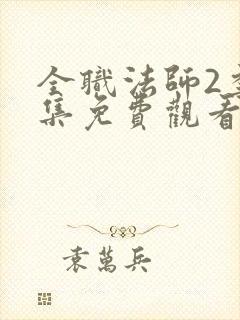 全職法師2
集免費觀看
袁萬兵